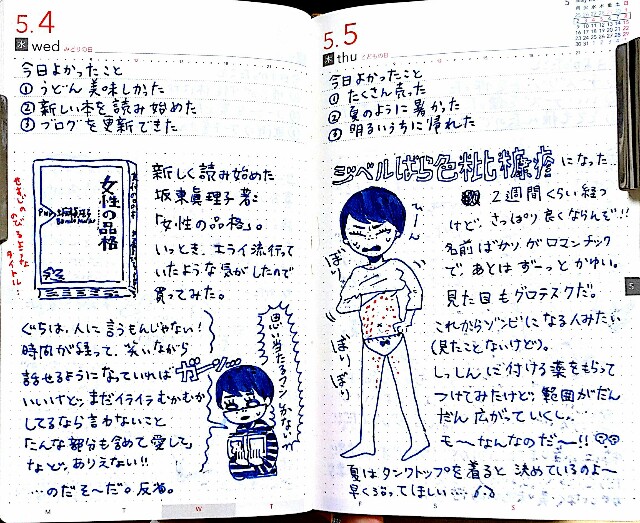 5.4
水 wed みどりの日
今日よかったこと
① うどん美味しかった
② 新しい本を読み始めた
③ ブログを更新できた
女性の品格
PHP
坂東眞理子
新しく読み始めた
坂東眞理子著:
「女性の品格」。
いっとき、エライ流行って
いたような気がしたので
買ってみた。
せすじの
のびるような
タイトル…
ぐちは、人に言うもんじゃない!
時間が経って、笑いながら
話せるようになっていれば
いいけど、まだイライラむかむか
してるなら言わないこと
「こんな部分も含めて愛して」
などと、ありえない!!
…のだそ〜だ。反省。
ガーン…
思い当たるフシしかない
M T W T
5.5
木 thu こどもの日
今日よかったこと
① たくさん売った
② 夏のように暑かった
③ 明るいうちに帰れた
ジベルばら色粃糠疹になった…
2週間くらい経つ
けど、さっぱり良くならんぞ!!
名前ばかりがロマンチック
で、あとはずーっとかゆい。
見た目もグロテスクだ。
これからゾンビになる人みたい
(見たことないけど)。
しっしんに付ける薬をもらって
つけてみたけど、範囲がだん
だん広がっていくし、
モ〜なんなのだ〜!!
ひーん
ぼりぼり
ぼりぼり
夏はタンクトップを着ると決めているのよ〜
早く治ってほしい…
F S S
5